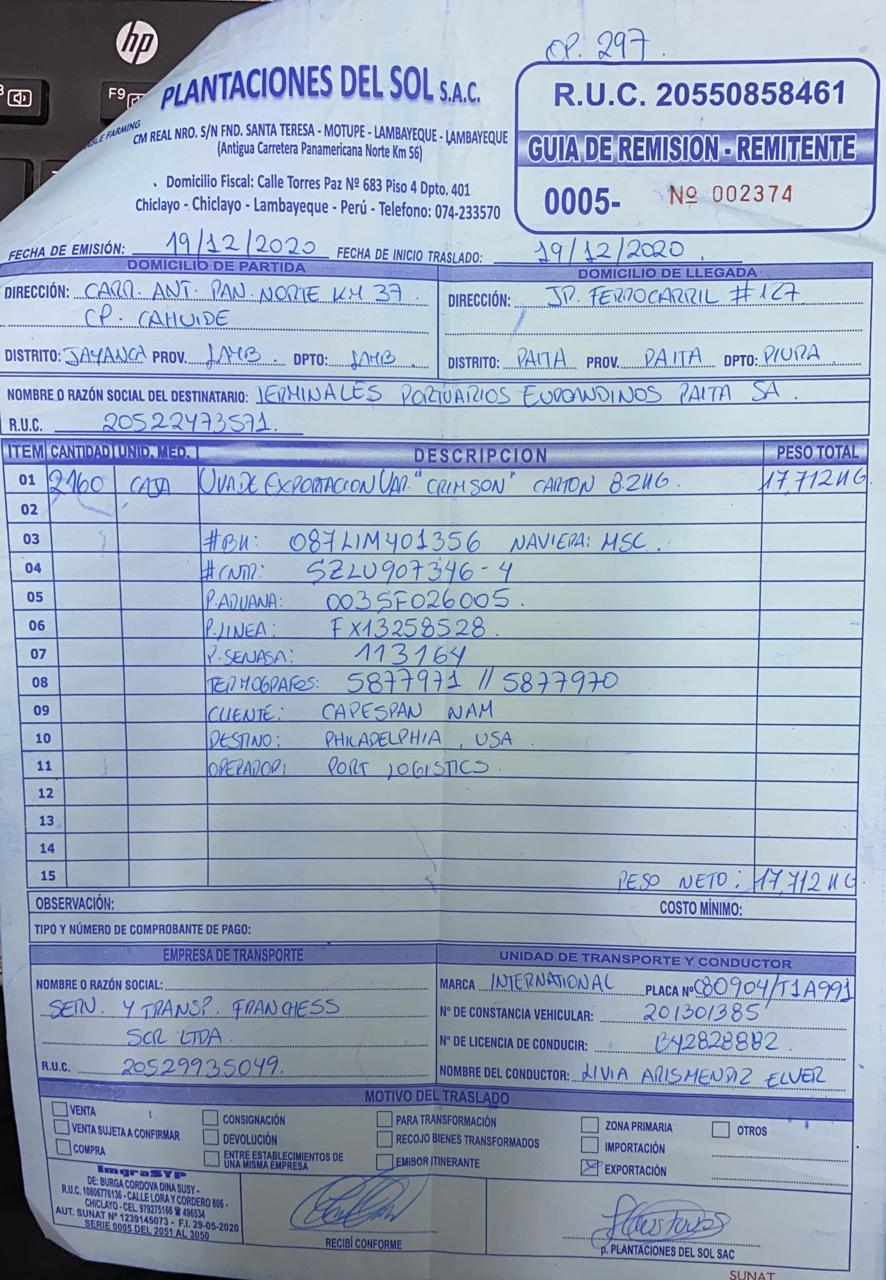 hp
F9
OP. 297
PLANTACIONES DEL SOL S.A.C.
R.U.C. 20550858461
CM REAL NRO. S/N FND. SANTA TERESA - MOTUPE - LAMBAYEQUE - LAMBAYEQUE
(Antigua Carretera Panamericana Norte Km 56)
GUIA DE REMISION - REMITENTE
Domicilio Fiscal: Calle Torres Paz Nº 683 Piso 4 Dpto. 401
Chiclayo - Chiclayo - Lambayeque - Perú - Telefono: 074-233570
0005- Nº 002374
FECHA DE EMISIÓN: 19/12/2020 FECHA DE INICIO TRASLADO: 19/12/2020
DOMICILIO DE PARTIDA DOMICILIO DE LLEGADA
DIRECCIÓN: CARR. ANT. PAN. NORTE KM 37 DIRECCIÓN: JP. FERROCARRIL #127
CP. CAHUIDE
DISTRITO: JAYANCA PROV. LAMB. DPTO: LAMB DISTRITO: PAITA PROV. PAITA DPTO: PIURA
NOMBRE O RAZÓN SOCIAL DEL DESTINATARIO: TERMINALES PORTUARIOS EUROANDINOS PAITA SA.
R.U.C. 20522473571.
ITEM CANTIDAD UNID. MED. DESCRIPCION PESO TOTAL
01 2160 CAJA UVA DE EXPORTACION VAR. "CRIMSON" CARTON 8.2KG. 17,712KG
02
03 #BK: 087LIM401356 NAVIERA: MSC.
04 #CNTR: SZLU907346-4
05 P.ADUANA: 003SF026005.
06 P.LINEA: FX13258528.
07 P.SENASA: 113164
08 TERMOGRAFOS: 5877971 // 5877970
09 CLIENTE: CAPESPAN NAM
10 DESTINO: PHILADELPHIA, USA
11 OPERADOR: PORT LOGISTICS.
12
13
14
15 PESO NETO: 17,712KG
OBSERVACIÓN: COSTO MÍNIMO:
TIPO Y NÚMERO DE COMPROBANTE DE PAGO:
EMPRESA DE TRANSPORTE UNIDAD DE TRANSPORTE Y CONDUCTOR
NOMBRE O RAZÓN SOCIAL: MARCA INTERNATIONAL PLACA Nº C80904/T1A991
SERV. Y TRANSP. FRANCHESS Nº DE CONSTANCIA VEHICULAR: 201301385
SCR LTDA Nº DE LICENCIA DE CONDUCIR: B42828882
R.U.C. 20529935049. NOMBRE DEL CONDUCTOR: LIVIA ARISMENDIZ ELVER
MOTIVO DEL TRASLADO
VENTA CONSIGNACIÓN PARA TRANSFORMACIÓN ZONA PRIMARIA OTROS
VENTA SUJETA A CONFIRMAR DEVOLUCIÓN RECOJO BIENES TRANSFORMADOS IMPORTACIÓN
COMPRA ENTRE ESTABLECIMIENTOS DE UNA MISMA EMPRESA EMISOR ITINERANTE EXPORTACIÓN
ImgraSYP
DE: BURGA CORDOVA DINA SUSY -
R.U.C. 10806776136 - CALLE LORA Y CORDERO 806 -
CHICLAYO - CEL. 979275166 # 496534
AUT. SUNAT Nº 1239145073 - F.I. 29-05-2020
SERIE 0005 DEL 2051 AL 3050
RECIBÍ CONFORME
p. PLANTACIONES DEL SOL SAC
SUNAT